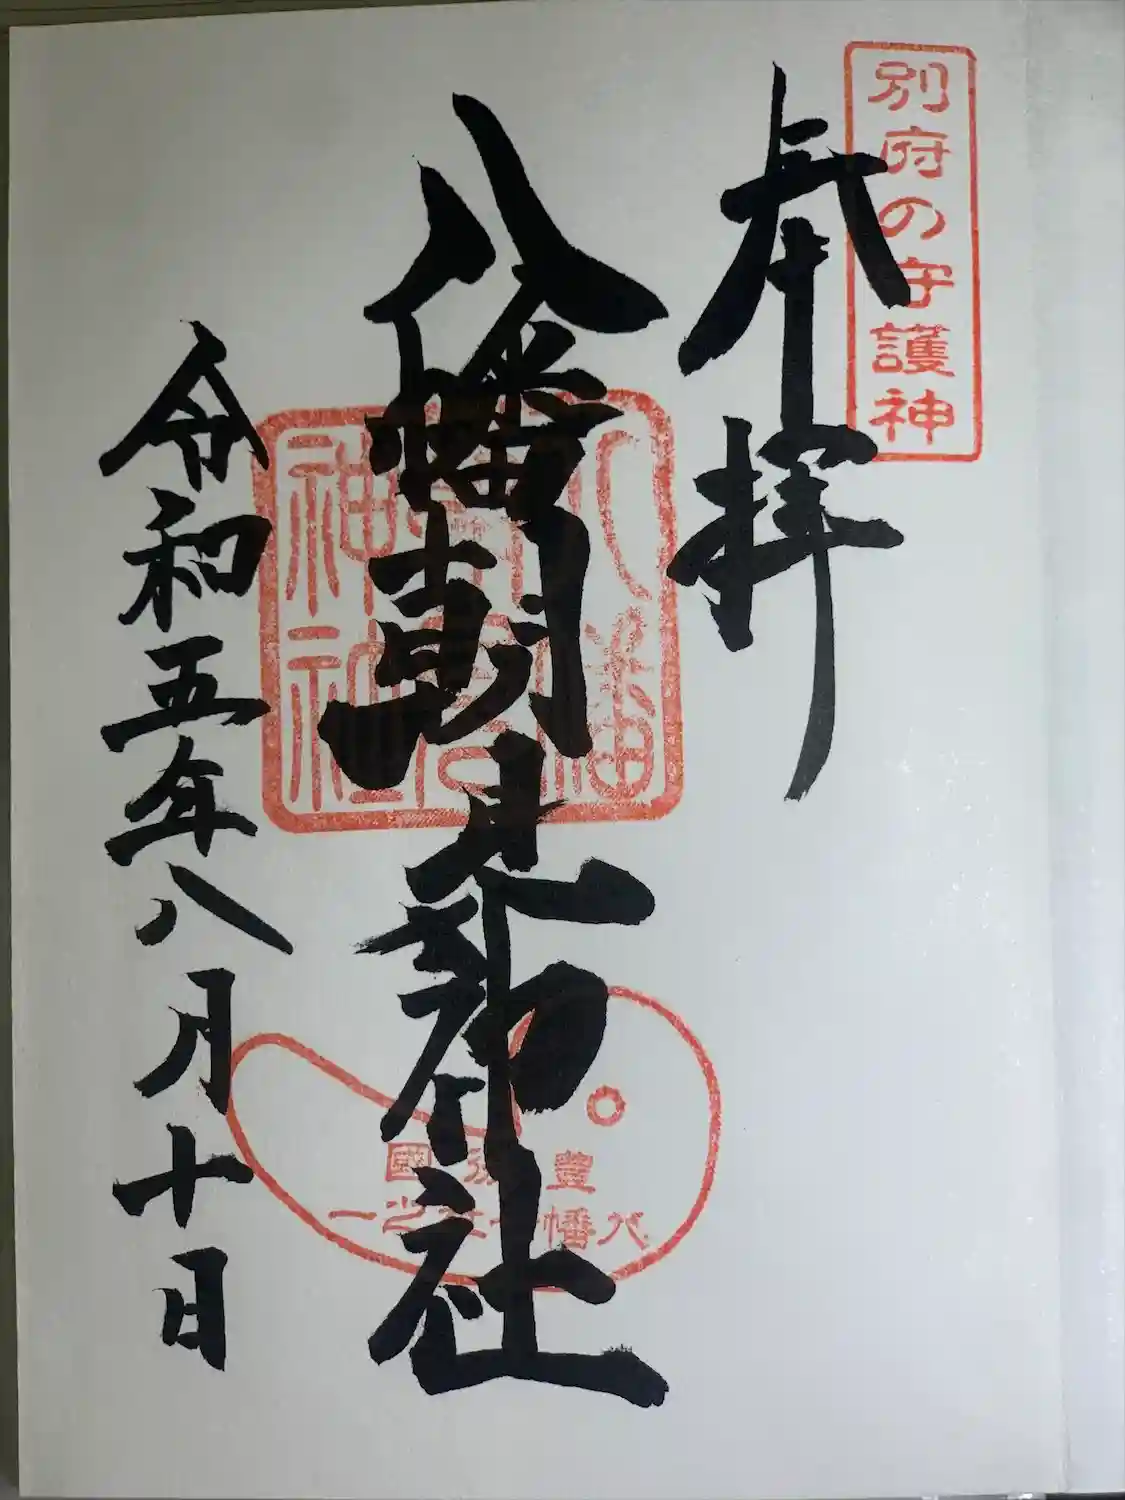 別府の守護神
奉拝
八幡朝見神社
令和五年八月十日
八幡朝見神社
豊 國
八幡 社之一